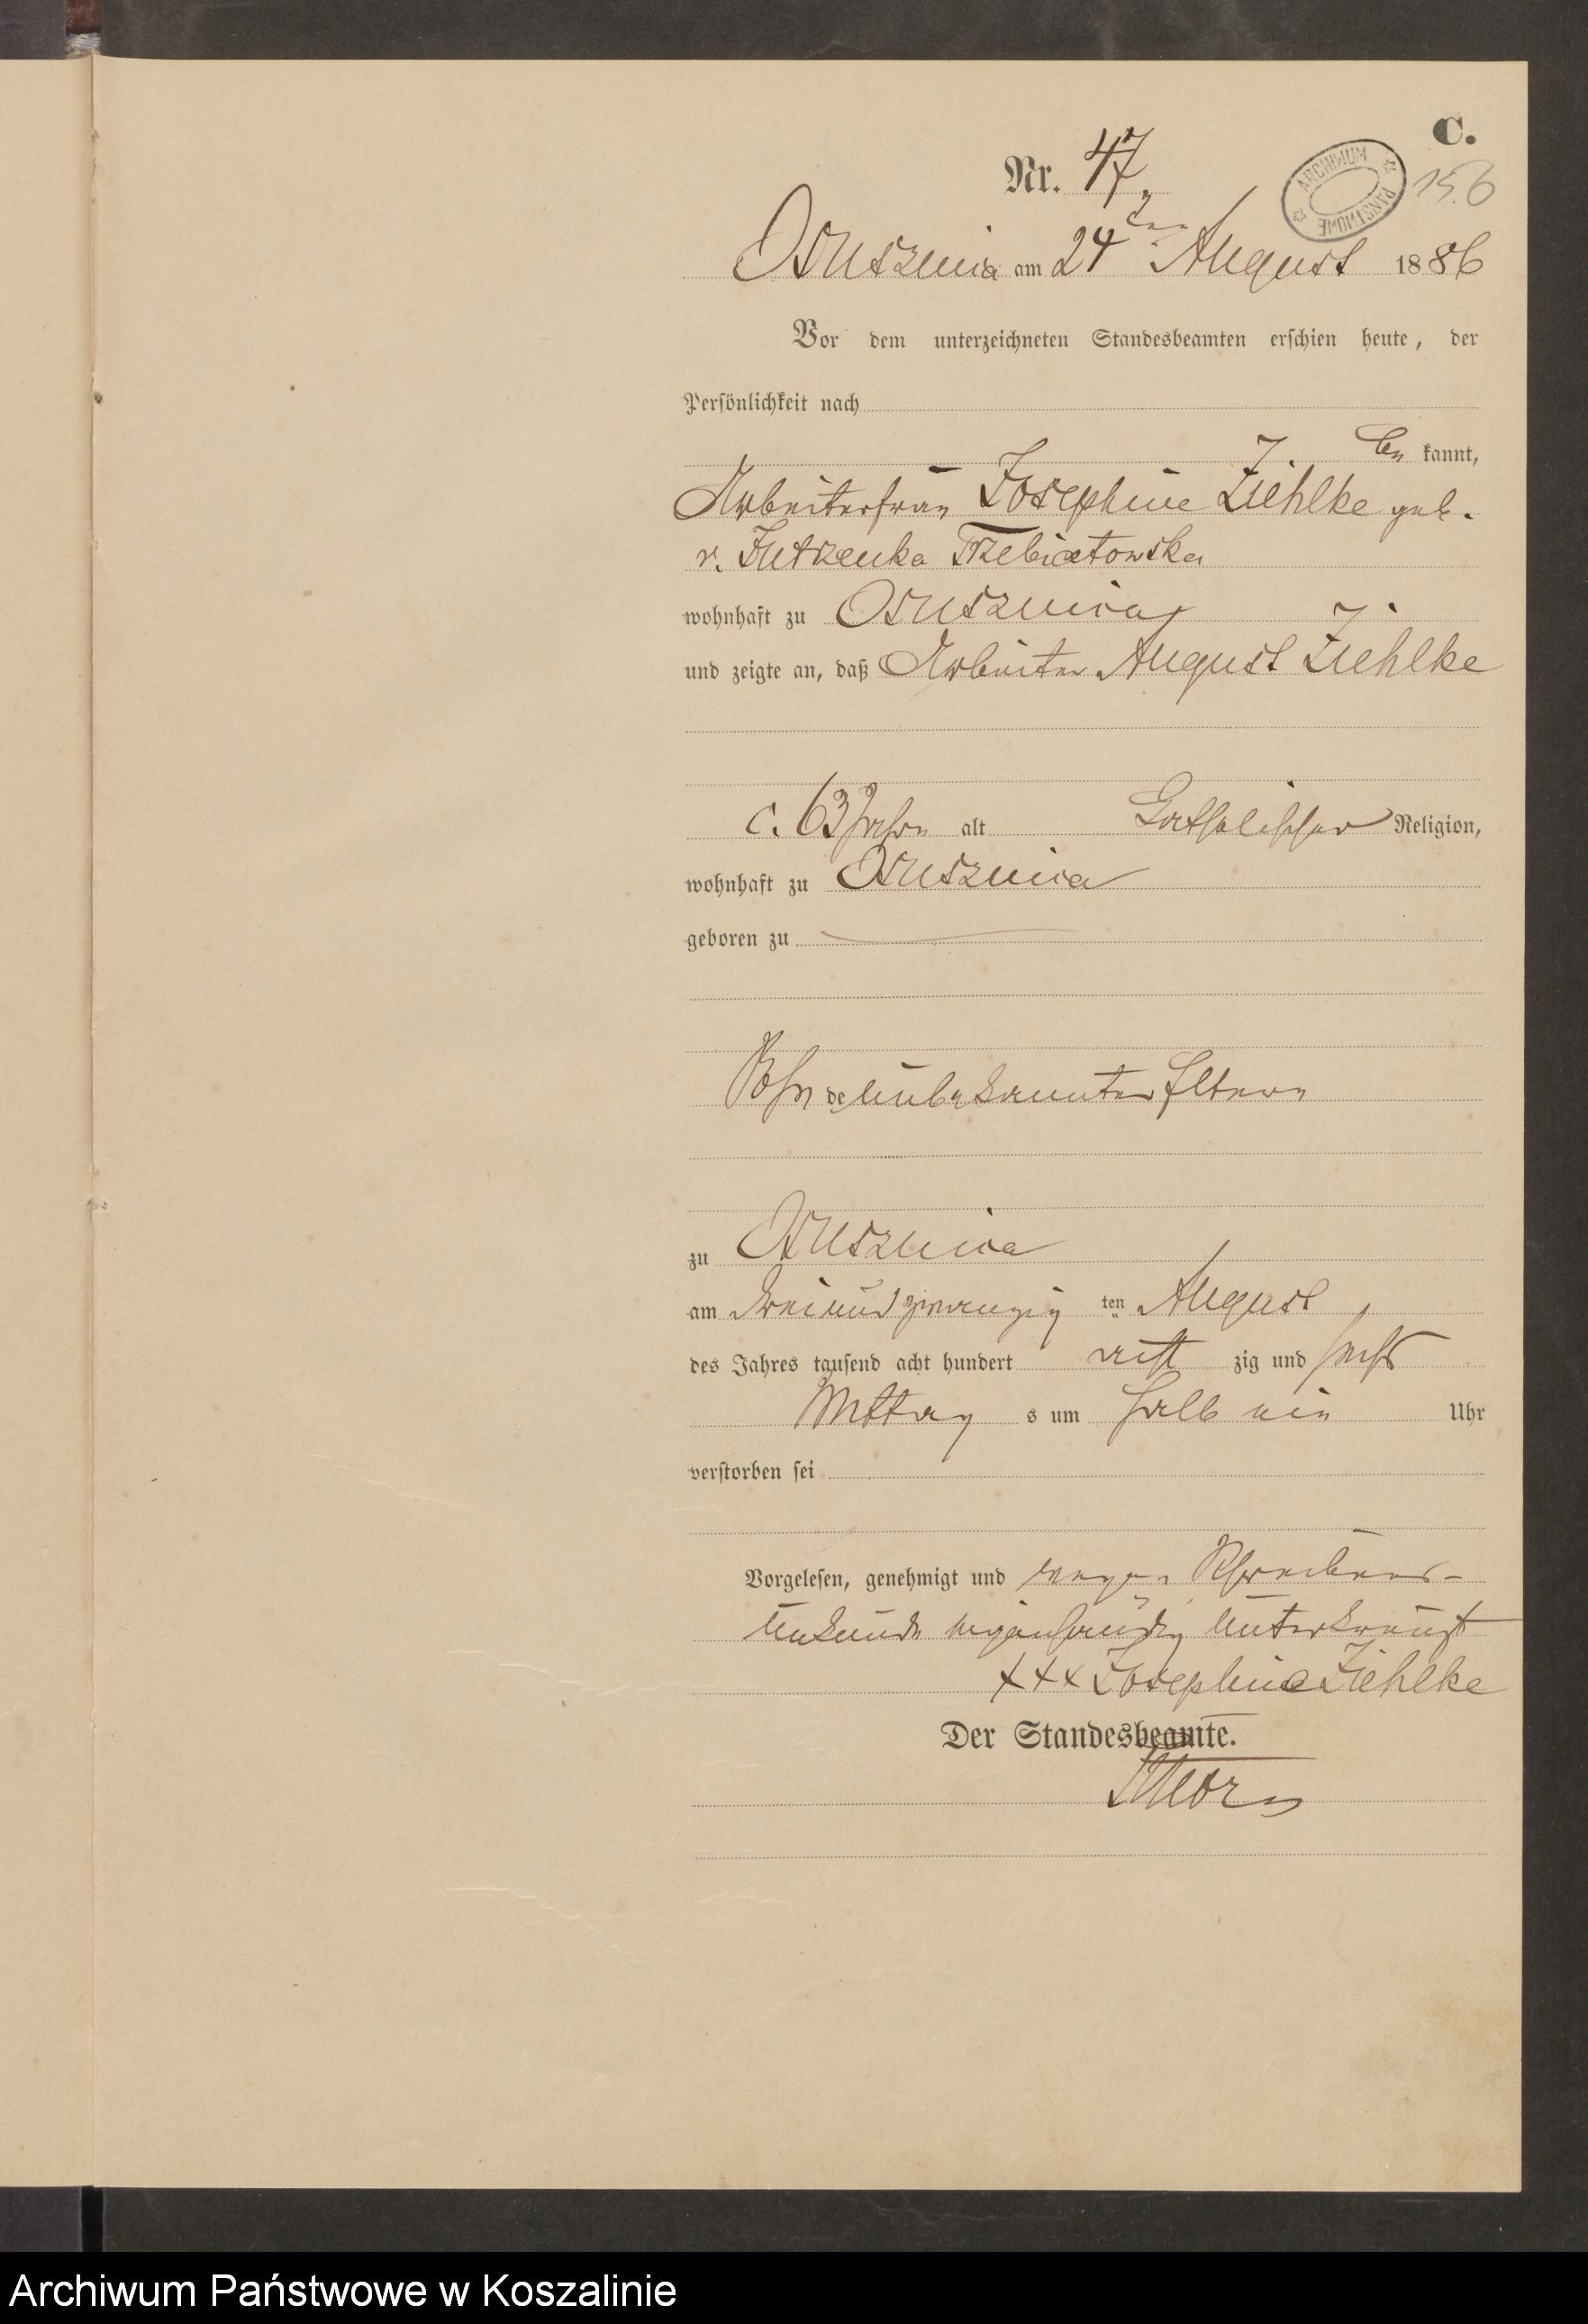 C.
Nr. 47.
ARCHIWUM PAŃSTWOWE
156
Ossusznica am 24ten August 1886
Vor dem unterzeichneten Standesbeamten erschien heute, der
Persönlichkeit nach
be kannt,
Arbeiterfrau Josephine Ziehlke geb.
v. Jutrzenka Trzebiatowska
wohnhaft zu Ossusznica
und zeigte an, daß Arbeiter August Ziehlke
c. 63 Jahre alt katholischer Religion,
wohnhaft zu Ossusznica
geboren zu
Sohn de unbekannter Eltern
zu Ossusznica
am dreiundzwanzig ten August
des Jahres tausend acht hundert acht zig und sechs
Mittag s um halb ein Uhr
verstorben sei
Vorgelesen, genehmigt und wegen Schreibens-
unkunde eigenhändig unterkreuzt
+++ Josephine Ziehlke
Der Standesbeamte.
Archiwum Państwowe w Koszalinie